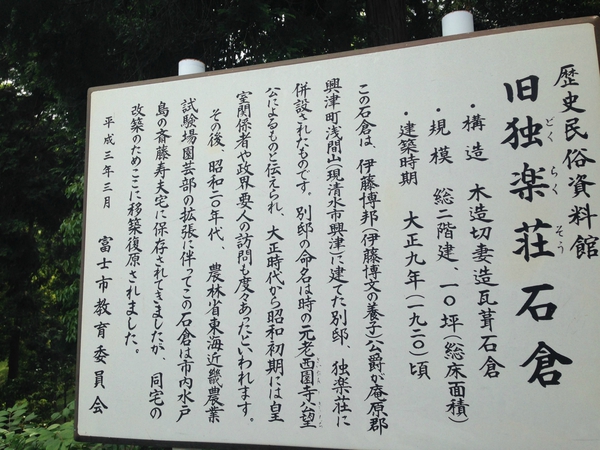 歴史民俗資料館
旧独楽荘石倉
どくらくそう
・構造 木造切妻造瓦葺石倉
・規模 総二階建、一〇坪(総床面積)
・建築時期 大正九年(一九二〇)頃
この石倉は、伊藤博邦(伊藤博文の養子)公爵が庵原郡
興津町浅間山(現清水市興津)に建てた別邸、独楽荘に
併設されたものです。別邸の命名は時の元老西園寺公望
公によるものと伝えられ、大正時代から昭和初期には皇
室関係者や政界要人の訪問も度々あったといわれます。
その後、昭和二〇年代、農林省東海近畿農業
試験場園芸部の拡張に伴ってこの石倉は市内水戸
島の斎藤寿夫宅に保存されてきましたが、同宅の
改築のためここに移築復原されました。
平成三年三月 富士市教育委員会